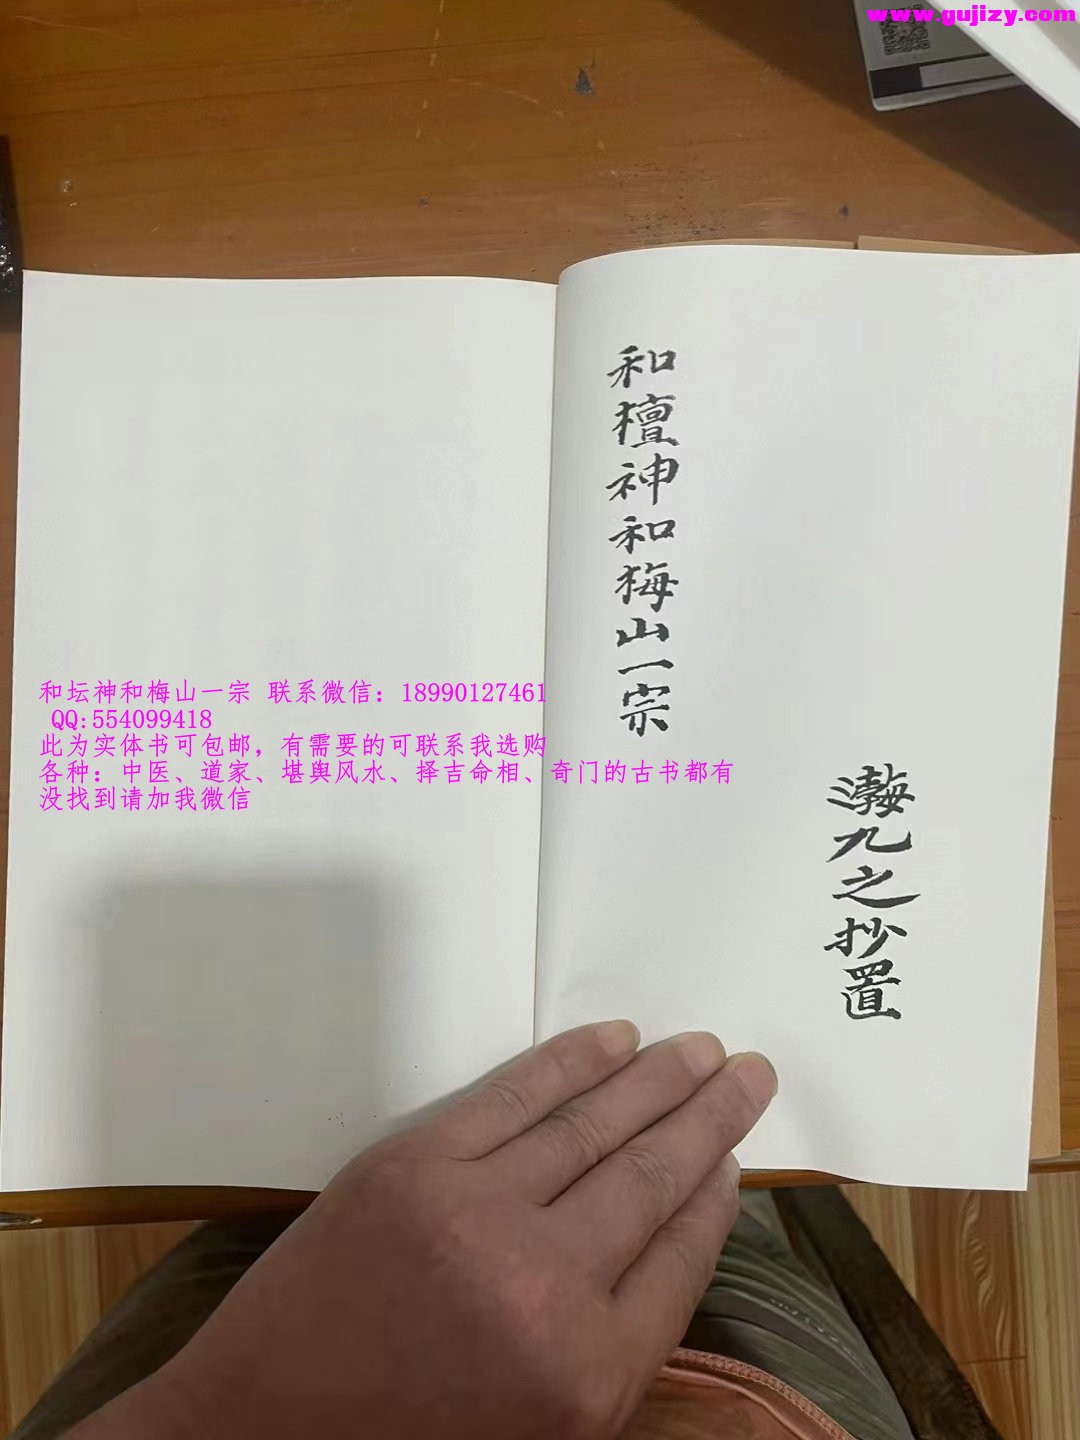 www.gujizy.com
和檀神和梅山一宗
九之抄置
和坛神和梅山一宗 联系微信：18990127461
QQ:554099418
此为实体书可包邮，有需要的可联系我选购
各种：中医、道家、堪舆风水、择吉命相、奇门的古书都有
没找到请加我微信